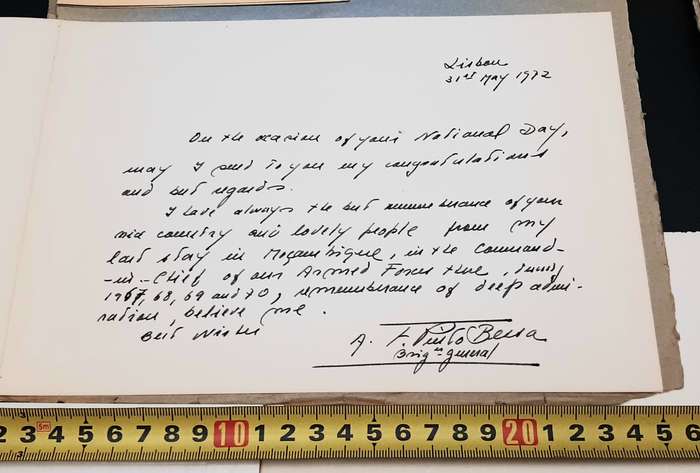 Lisbon
31st May 1972
On the ocasion of your National Day,
may I send to you my congratulations
and best regards.
I have always the best remembrance of your
nice country and lovely people from my
last stay in Moçambique, in the Command-
-in-Chief of our Armed Forces there, during
1967, 68, 69 and 70, remembrance of deep admi-
ration, believe me.
Best Wishes
A. F. Pinto Bessa
Brig. general
2 3 4 5m 5 6 7 8 9 10 1 2 3 4 5 6 7 8 9 20 1 2 3 4 5 6